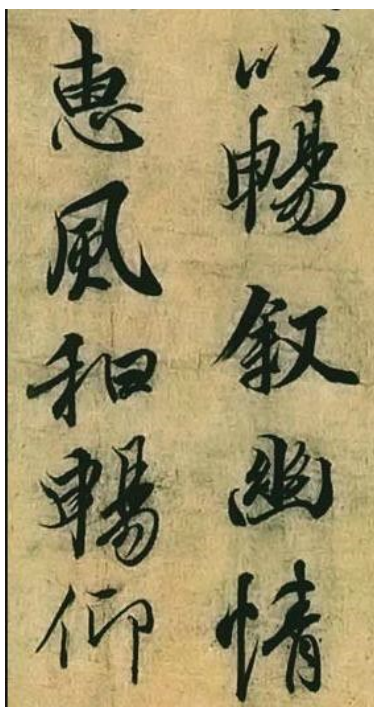 以暢叙幽情
惠風和暢仰